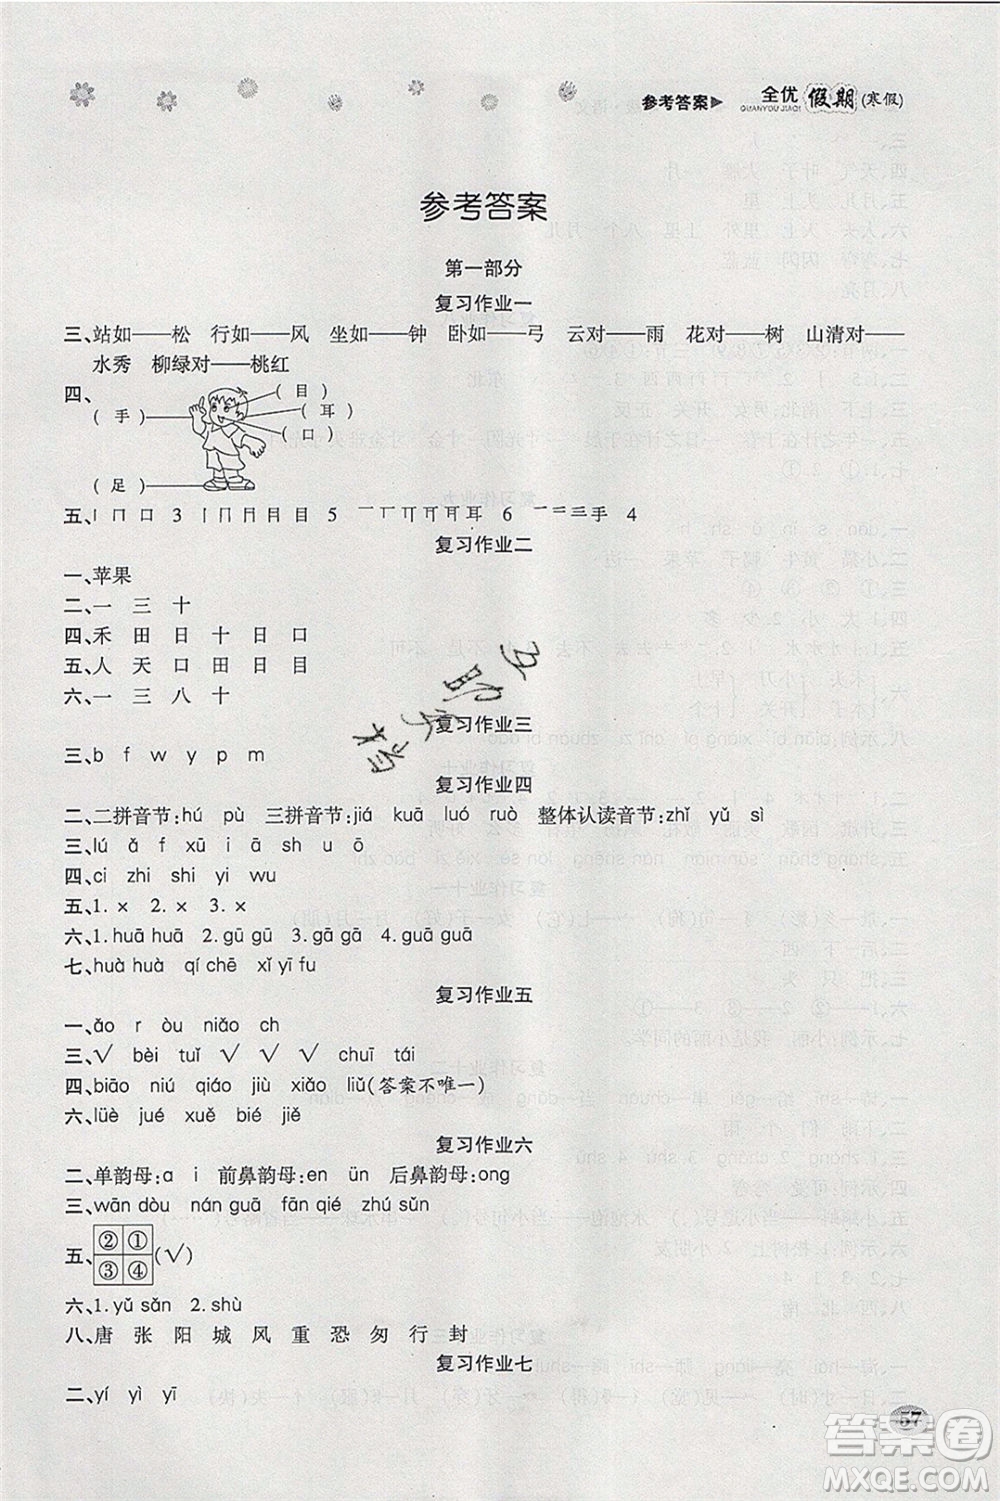 参考答案 全优假期(寒假)
QUANYOU JIAQI
参考答案
第一部分
复习作业一
三、站如——松 行如——风 坐如——钟 卧如——弓 云对——雨 花对——树 山清对——
水秀 柳绿对——桃红
四、
(目)
(手) (耳)
(口)
(足)
五、丨 冂 口 3 丨 冂 月 月 目 5
6
手 4
复习作业二
一、苹果
二、一 三 十
四、禾 田 日 十 日 口
五、人 天 口 田 日 目
六、一 三 八 十
复习作业三
三、b f w y p m
复习作业四
二、二拼音节:hú pù 三拼音节:jiá kuā luó ruò 整体认读音节:zhǐ yǔ sì
三、lú ǎ f xī ā shu ō
四、ci zhi shi yi wu
五、1. × 2. × 3. ×
六、1. huā huā 2. gū gū 3. gā gā 4. guā guā
七、huà huà qí chē xǐ yī fu
复习作业五
一、ǎo r òu niǎo ch
三、√ bèi tuǐ √ √ √ chuī tái
四、biāo niú qiáo jiù xiǎo liǔ(答案不唯一)
六、lüè jué xuě bié jiě
复习作业六
二、单韵母:a i 前鼻韵母:en ün 后鼻韵母:ong
三、wān dòu nán guā fān qié zhú sǔn
五、② ① (√)
③ ④
六、1. yǔ sǎn 2. shù
八、唐 张 阳 城 风 重 恐 匆 行 封
复习作业七
二、yí yì yī
57
答案圈
MXQE.COM